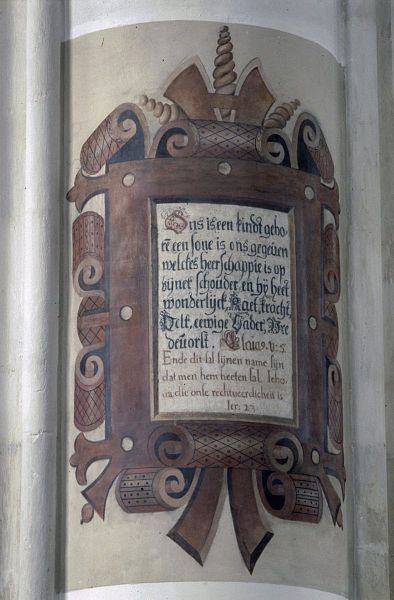 Ons is een kindt gebo-
rē een sone is ons gegeven
welckes heerschappie is op
sijner schouder, en hy heet
wonderlijck, Raet, kracht,
Helt, eewige Vader, Vre
devorst. Esaia 9. v. 5.
Ende dit sal sijnen name sijn
dat men hem heeten sal Ieho-
va die onse rechtveerdicheit is
Ier: 23